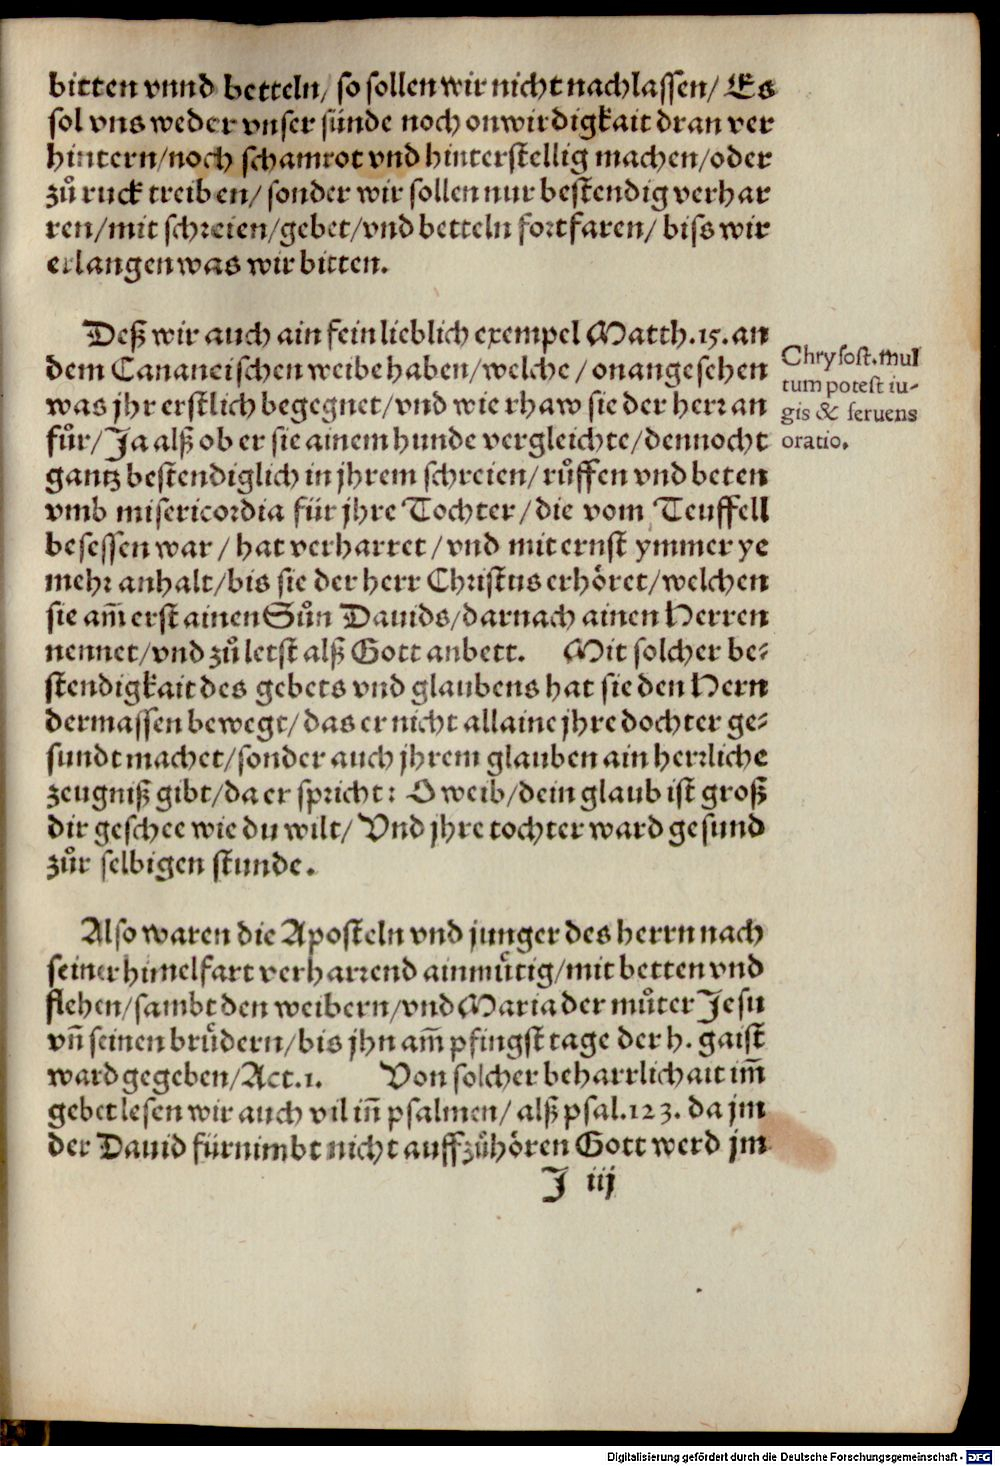 bitten vnnd betteln/ so sollen wir nicht nachlassen/ Es
sol vns weder vnser sünde noch onwirdigkait dran ver
hintern/noch schamrot vnd hinterstellig machen/oder
zů ruck treiben/ sonder wir sollen nur bestendig verhar
ren/mit schreien/gebet/vnd betteln fortfaren/ biss wir
erlangen was wir bitten.
Deß wir auch ain fein lieblich exempel Matth.15. an
dem Cananeischen weibe haben/welche/ onangesehen
was jhr erstlich begegnet/vnd wie rhaw sie der herr an
fůr/Ja alß ob er sie ainem hunde vergleichte/dennocht
gantz bestendiglich in jhrem schreien/růffen vnd beten
vmb misericordia für jhre Tochter/die vom Teuffell
besessen war/ hat verharret/vnd mit ernst ymmer ye
mehr anhalt/bis sie der herr Christus erhöret/welchen
sie am̃ erst ainen Sůn Dauids/darnach ainen Herren
nennet/vnd zů letst alß Gott anbett. Mit solcher be-
stendigkait des gebets vnd glaubens hat sie den Hern
dermassen bewegt/das er nicht allaine jhre dochter ge-
sundt machet/sonder auch jhrem glauben ain herrliche
zeugniß gibt/da er spricht: O weib/dein glaub ist groß
dir geschee wie du wilt/ Vnd jhre tochter ward gesund
zůr selbigen stunde.
Also waren die Aposteln vnd junger des herrn nach
seiner himelfart verharrend ainmůtig/mit betten vnd
flehen/sambt den weibern/vnd Maria der můter Jesu
vñ seinen brůdern/bis jhn am̃ pfingst tage der h. gaist
ward gegeben/Act.1. Von solcher beharrlichait im̃
gebet lesen wir auch vil iñ psalmen/ alß psal.123. da jm
der Dauid fürnimbt nicht auffzůhören Gott werd jm
J iij
Chrysost. mul
tum potest iu-
gis & feruens
oratio.
Digitalisierung gefördert durch die Deutsche Forschungsgemeinschaft - DFG